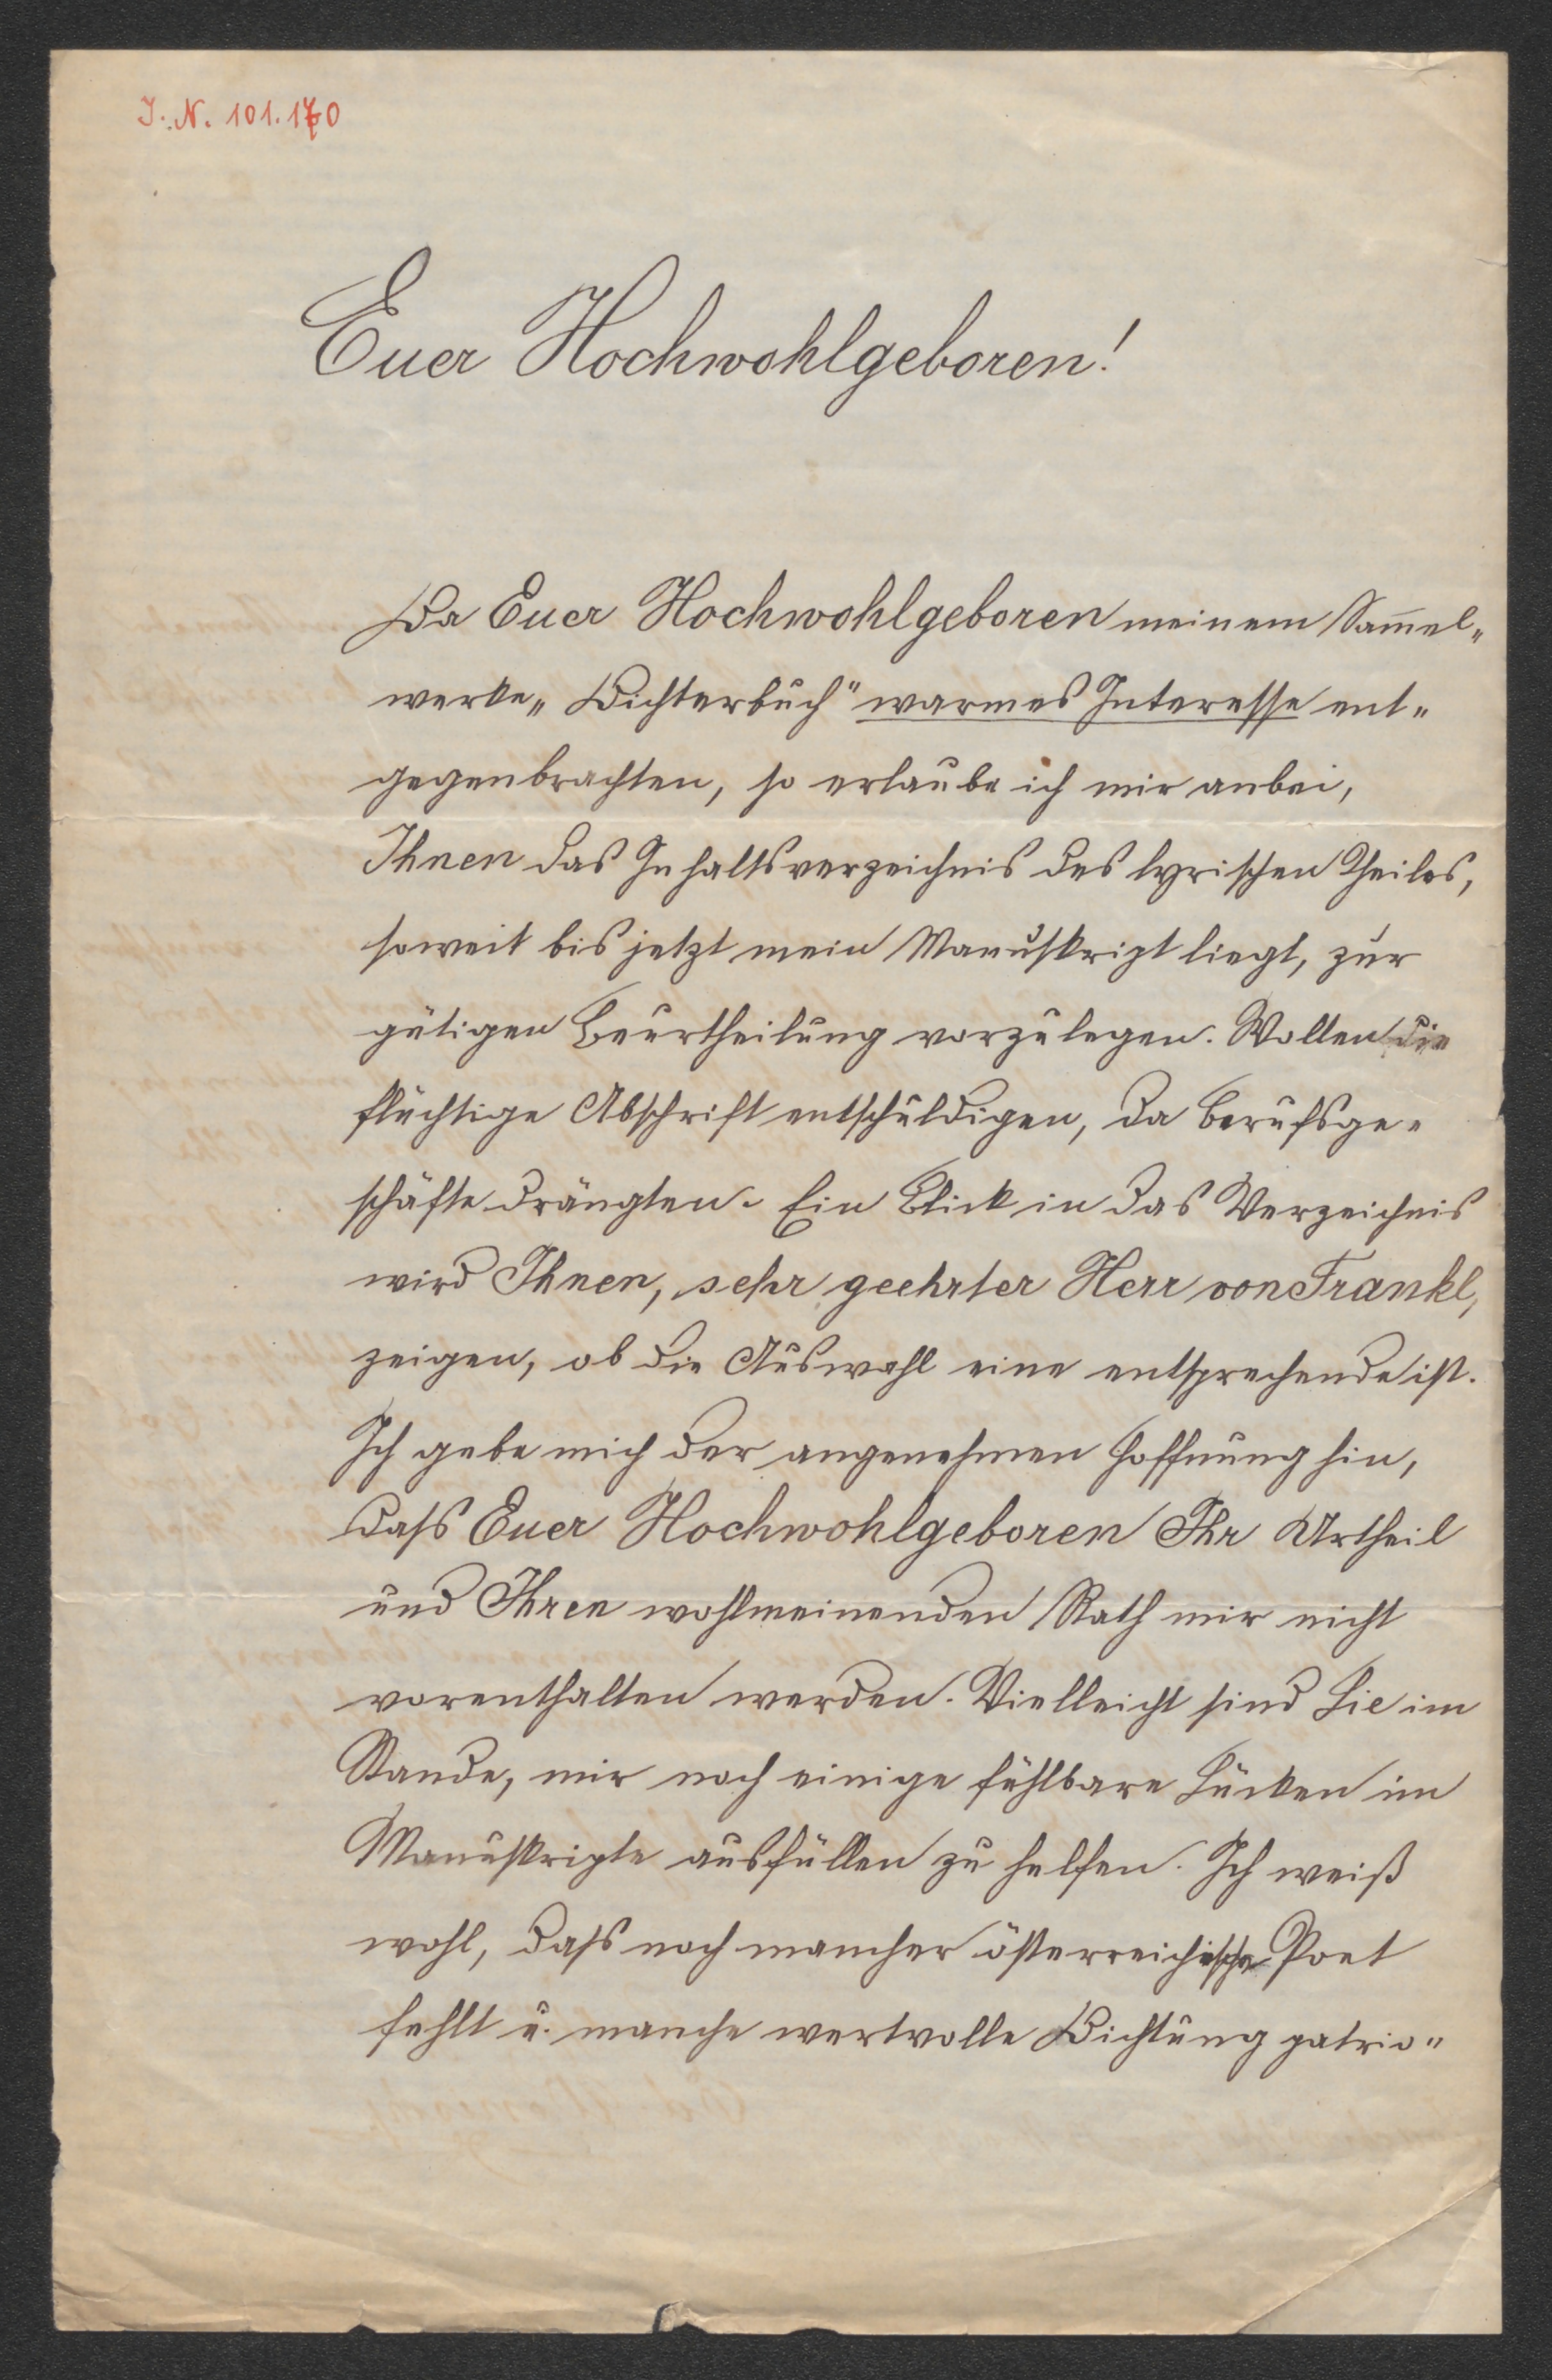 J. N. 101.170
Euer Hochwohlgeboren!
Da Euer Hochwohlgeboren meinem Sam̄el„
werke „Dichterbuch" warmes Interesse ent„
gegenbrachten, so erlaube ich mir anbei,
Ihnen das Inhaltsverzeichnis des lyrischen Theiles,
soweit bis jetzt mein Manuskript liegt, zur
gütigen Beurtheilung vorzulegen. Wollen die
flüchtige Abschrift entschuldigen, da Berufsge„
schäfte drängten. Ein Blick in das Verzeichnis
wird Ihnen, sehr geehrter Herr von Frankl,
zeigen, ob die Auswahl eine entsprechende ist.
Ich gebe mich der angenehmen Hoffnung hin,
dass Euer Hochwohlgeboren Ihr Urtheil
und Ihren wohlmeinenden Rath mir nicht
vorenthalten werden. Vielleicht sind Sie im
Stande, mir noch einige fühlbare Lücken im
Manuskripte ausfüllen zu helfen. Ich weiß
wohl, dass noch mancher österreichische Poet
fehlt u. manche wertvolle Dichtung patrio„